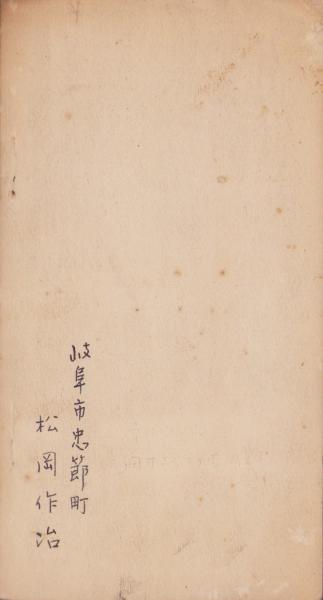 岐阜市忠節町
松岡作治